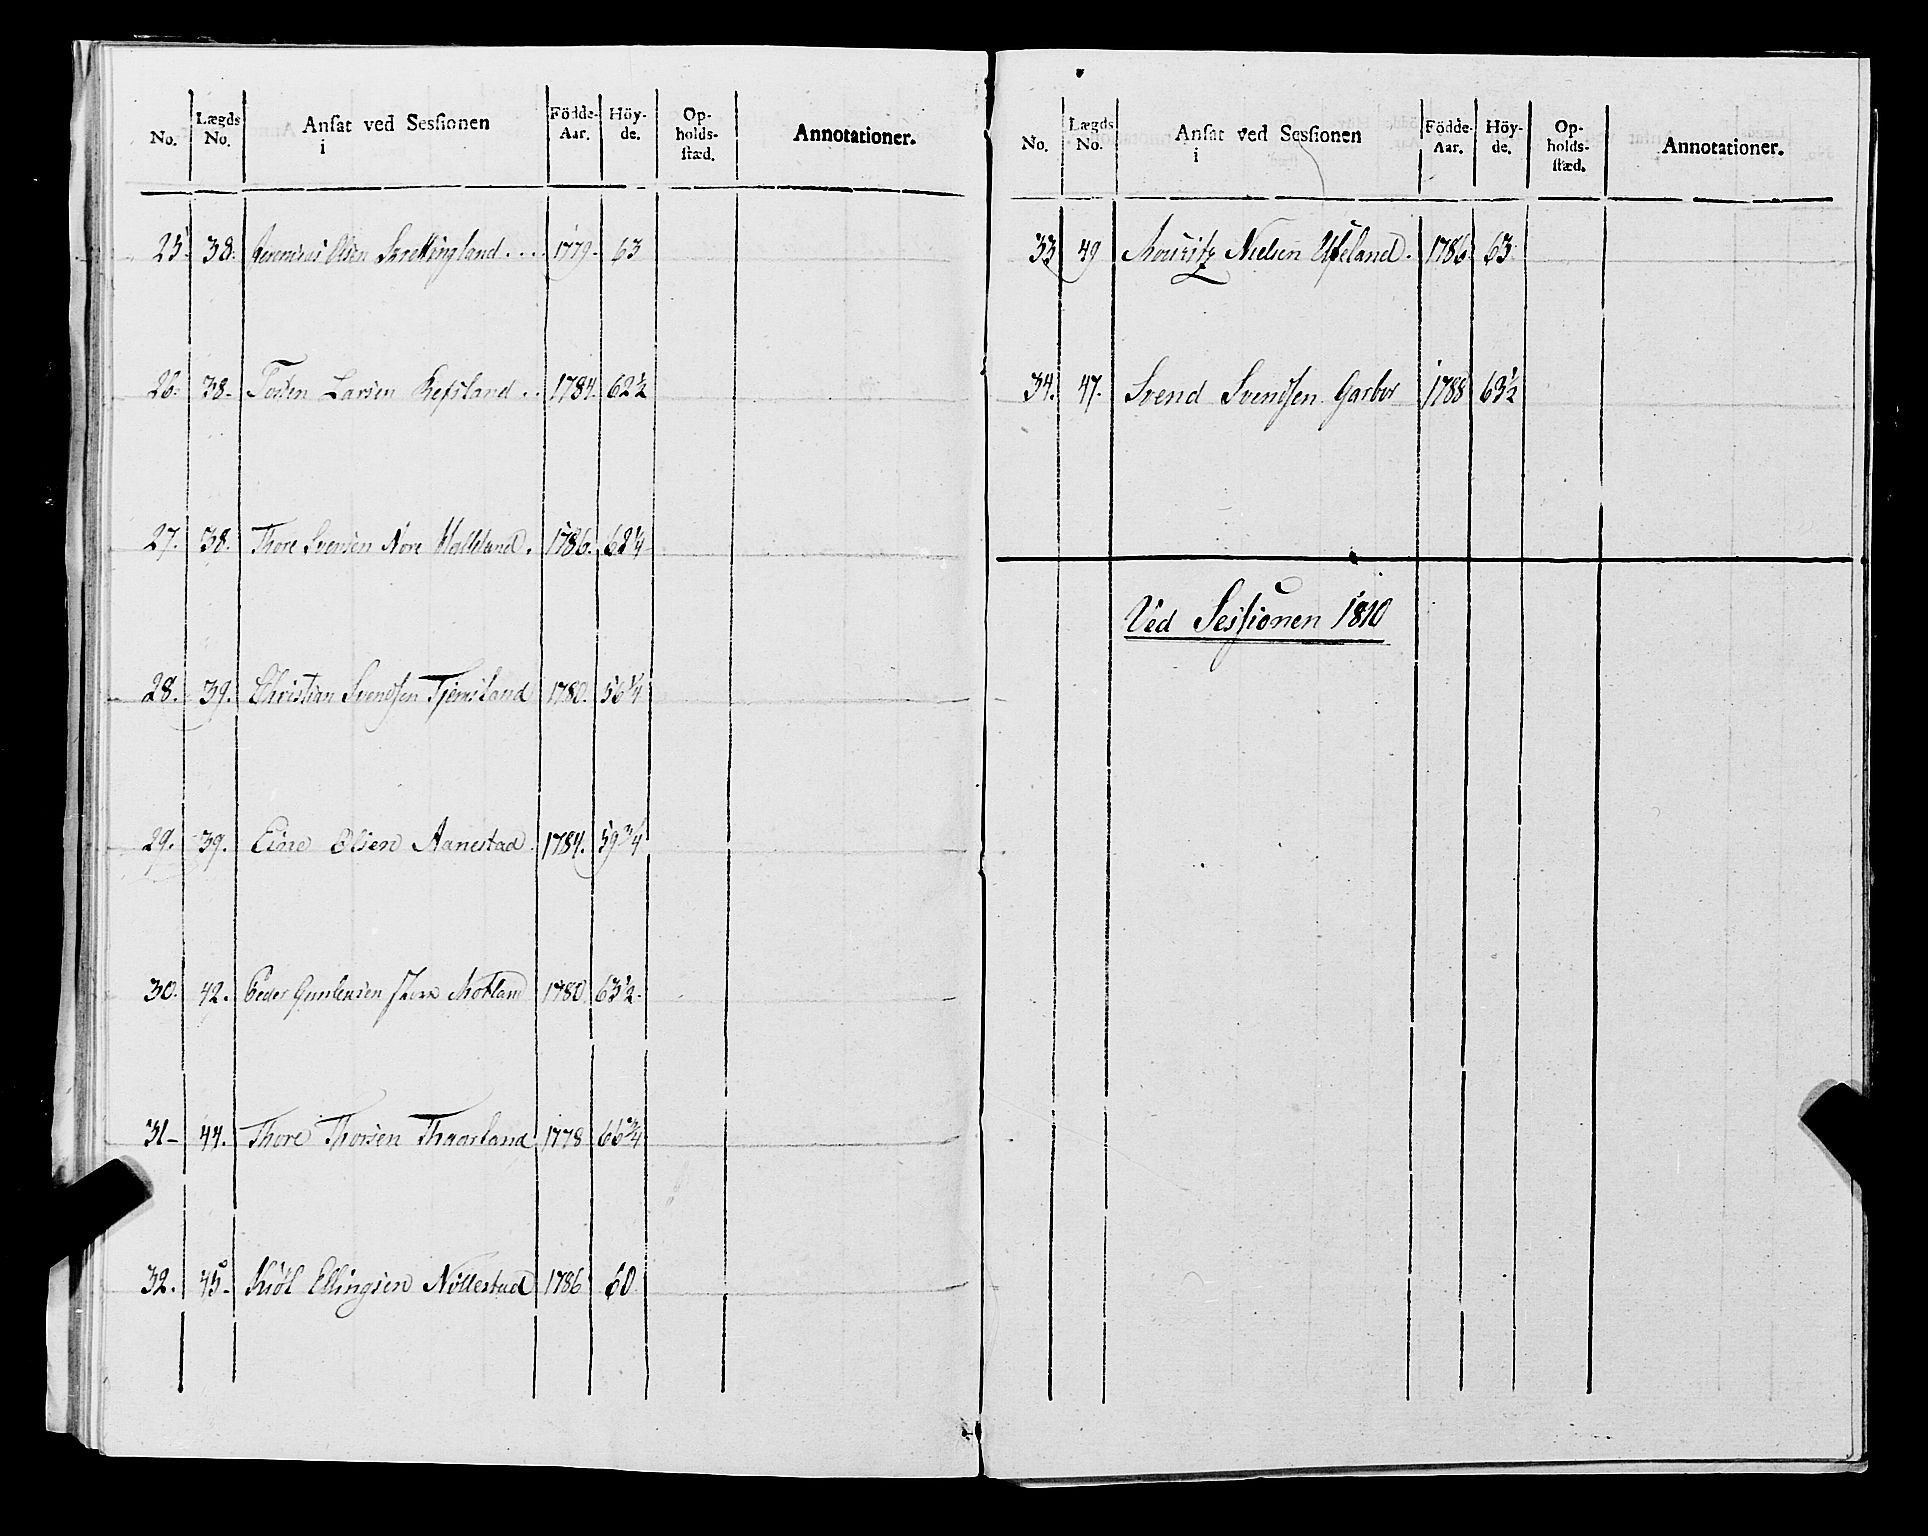 No. Lægds No. Ansat ved Sessionen i Födde-Aar. Höy-de. Op-holds-stæd. Annotationer.
25. 38. Olsen Skrettingland.... 1779. 63
26. 38. Tosten Larsen Refsland.. 1784. 62½
27. 38. Thore Svensen Nøre Hølleland. 1786. 62¼
28. 39. Christian Svendsen Tjemsland 1780. 56¼
29. 39. Eine Olsen Aanestad. 1784. 59¾
30. 42. Peder Store Motland 1780. 63½.
31- 44. Thore Thorsen Thaarland 1778 66¾
32. 45. Kiöl Ellingsen Nöllestad 1786 60
No. Lægds No. Ansat ved Sessionen i Födde-Aar. Höy-de. Op-holds-stæd. Annotationer.
33 49 Mouritz Nielsen Ueland. 1786. 63.
34. 47. Svend Svendsen Garbor 1788 63½
Ved Sessionen 1810